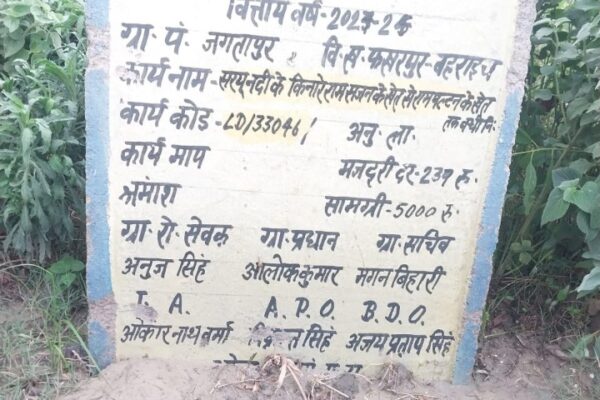 वित्तीय वर्ष-2024-25
ग्रा. पं. जगतापुर वि.ख. फखरपुर-बहराइच
कार्य नाम- सरयू नदी के किनारे रामसजन के खेत से के खेत
कार्य कोड-LD/33046/ अनु. ला. तक
कार्य माप मजदूरी दर-237 रु.
श्रमांश सामग्री-5000 रु.
ग्रा. रो. सेवक ग्रा. प्रधान ग्रा. सचिव
अनुज सिंह आलोक कुमार मगन बिहारी
T. A. A. P. O. B. D. O.
ओंकार नाथ वर्मा सिंह अजय प्रताप सिंह